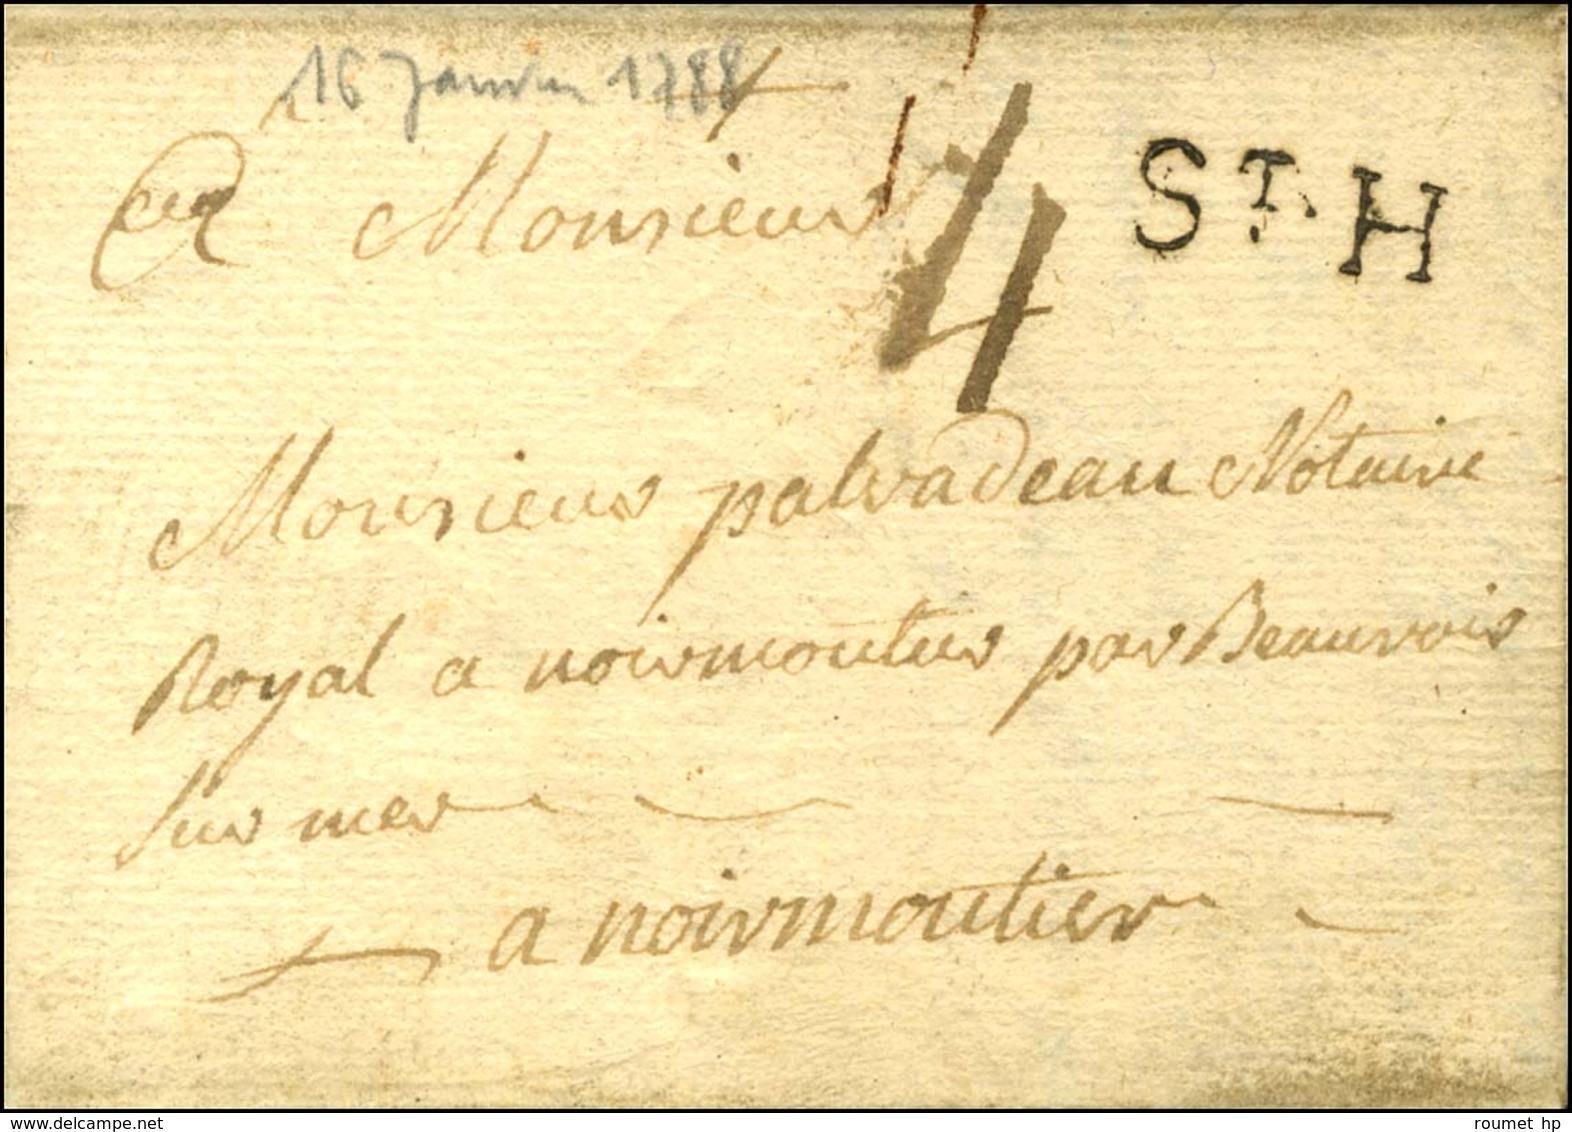 16 Janvier 1788
A Monsieur 4 ST. H
Monsieur palvadeau Notaire
Royal a noirmoutier par Beauvois
Sur mer
a noirmoutier
www.delcampe.net
roumet hp